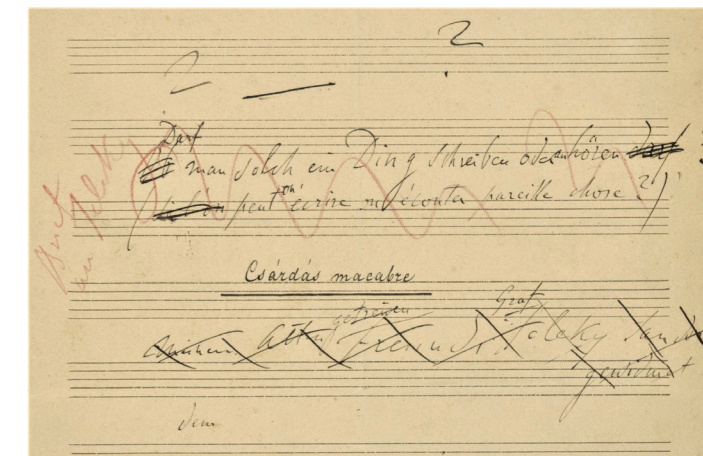 ?
Darf
man solch ein Ding schreiben oder anhören
peut on écrire ou écouter pareille chose?)
Brief
an Teleky
Csárdás macabre
getreuen Graf
Meinem alten Freund Teleky Sandor
gewidmet
dem